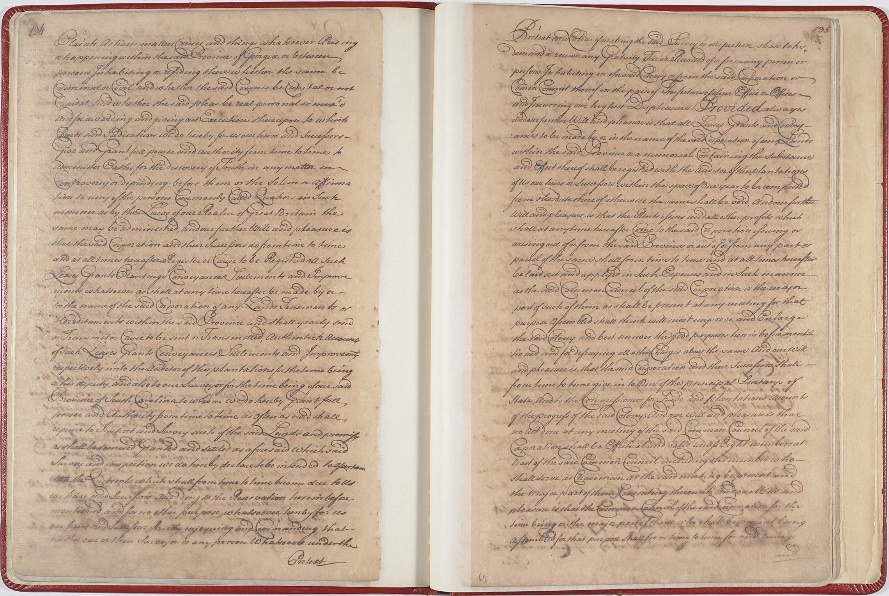 Plaints Actions matters Causes and things whatsoever Arising
or happening within the said Province of Georgia or between
persons Inhabiting or residing there whether the same be
Criminal or Civil and whether the said Crimes be Capital or not
Capital And whether the said pleas be real personal or mixt
And for awarding and giving out Executions thereupon to which
Courts and Judicatures we do hereby for us our heirs and Successors
give and Grant full power and authority from time to time to
Administer Oaths for the discovery of Truth in any matter in
Controversy or depending before them or the Solemn Affirma
tion to any of the persons Commonly Called Quakers in Such
manner as by the Laws of our Realm of Great Britain the
same may be administred And our further Will and pleasure is
that the said Corporation and their Successors do from time to time
and at all times hereafter Register or Cause to be Registred all Such
Leases Grants Plantings Conveyances Settlements and Improve
ments whatsoever as shall at any time hereafter be made by or
in the name of the said Corporation of any Lands Tenements or
Hereditaments within the said Province and shall yearly send
or transmit or Cause to be sent or Transmitted Authentick Accounts
of Such Leases Grants Conveyances Settlements and Improvements
respectively unto the Auditor of the plantations for the time being
or his deputy and also to our Surveyor for the time being of our said
Province of South Carolina to whom we do hereby Grant full
power and Authority from time to time as often as need shall
require to Inspect and Survey such of the said Lands and premisses
as shall be demised Granted and settled as aforesaid which said
Survey and inspection we do hereby declare to be intended to Ascertain
the Quitrents which shall from time to time become due to Us
our heirs and Successors according to the Reservation herein before
mentioned and for no other purpose whatsoever hereby for us
our heirs and Successors strictly enjoyning and Commanding that
neither our or their Surveyor or any person Whatsoever under the
Pretext
Pretext and Colour of making the said Survey or inspection shall take
demand or receive any Gratuity Fee or Reward of or from any person or
persons Inhabiting in the said Colony or from the said Corporation or
Common Council thereof on the pain of forfeiture of such Office or Offices
and incurring our highest displeasure Provided always
and our further Will and pleasure is that all Leases Grants and Convey
ances to be made by or in the name of the said Corporation of any Lands
within the said Province or a memorial Containing the Substance
and Effect thereof shall be registred with the Auditor of the plantations
of us our heirs and Successors within the space of One year to be computed
from the date thereof otherwise the same shall be void And our further
Will and pleasure is that the Rents Issues and all other profits which
shall at any time hereafter Come to the said Corporation issuing or
arising out of or from the said Province or out of or from any part or
parcel of the same shall from time to time and at all times hereafter
be laid out and applyed in Such Expences and in Such manner
as the said Common Council of the said Corporation or the major
part of such of them as shall be present at any meeting for that
purpose Assembled shall think will most improve and Enlarge
the said Colony and best answer the good purposes herein before mentio
ned and for defraying all other Charges about the same And our Will
and pleasure is that the said Corporation and their Successors shall
from time to time give in to One of the principal Secretarys of
State And to the Commissioners for Trade and plantations Accounts
of the progress of the said Colony And our Will and pleasure is that
no Act done at any meeting of the said Common Council of the said
Corporation shall be Effectual and valid unless Eight members at
least of the said Common Council including the member who
shall serve as Chairman at the said meeting be present and
the Major part of them Consenting thereunto And our Will and
pleasure is that the Common Council of the said Corporation for the
time being or the major part of them who shall be present being
Assembled for that purpose shall from time to time for and during